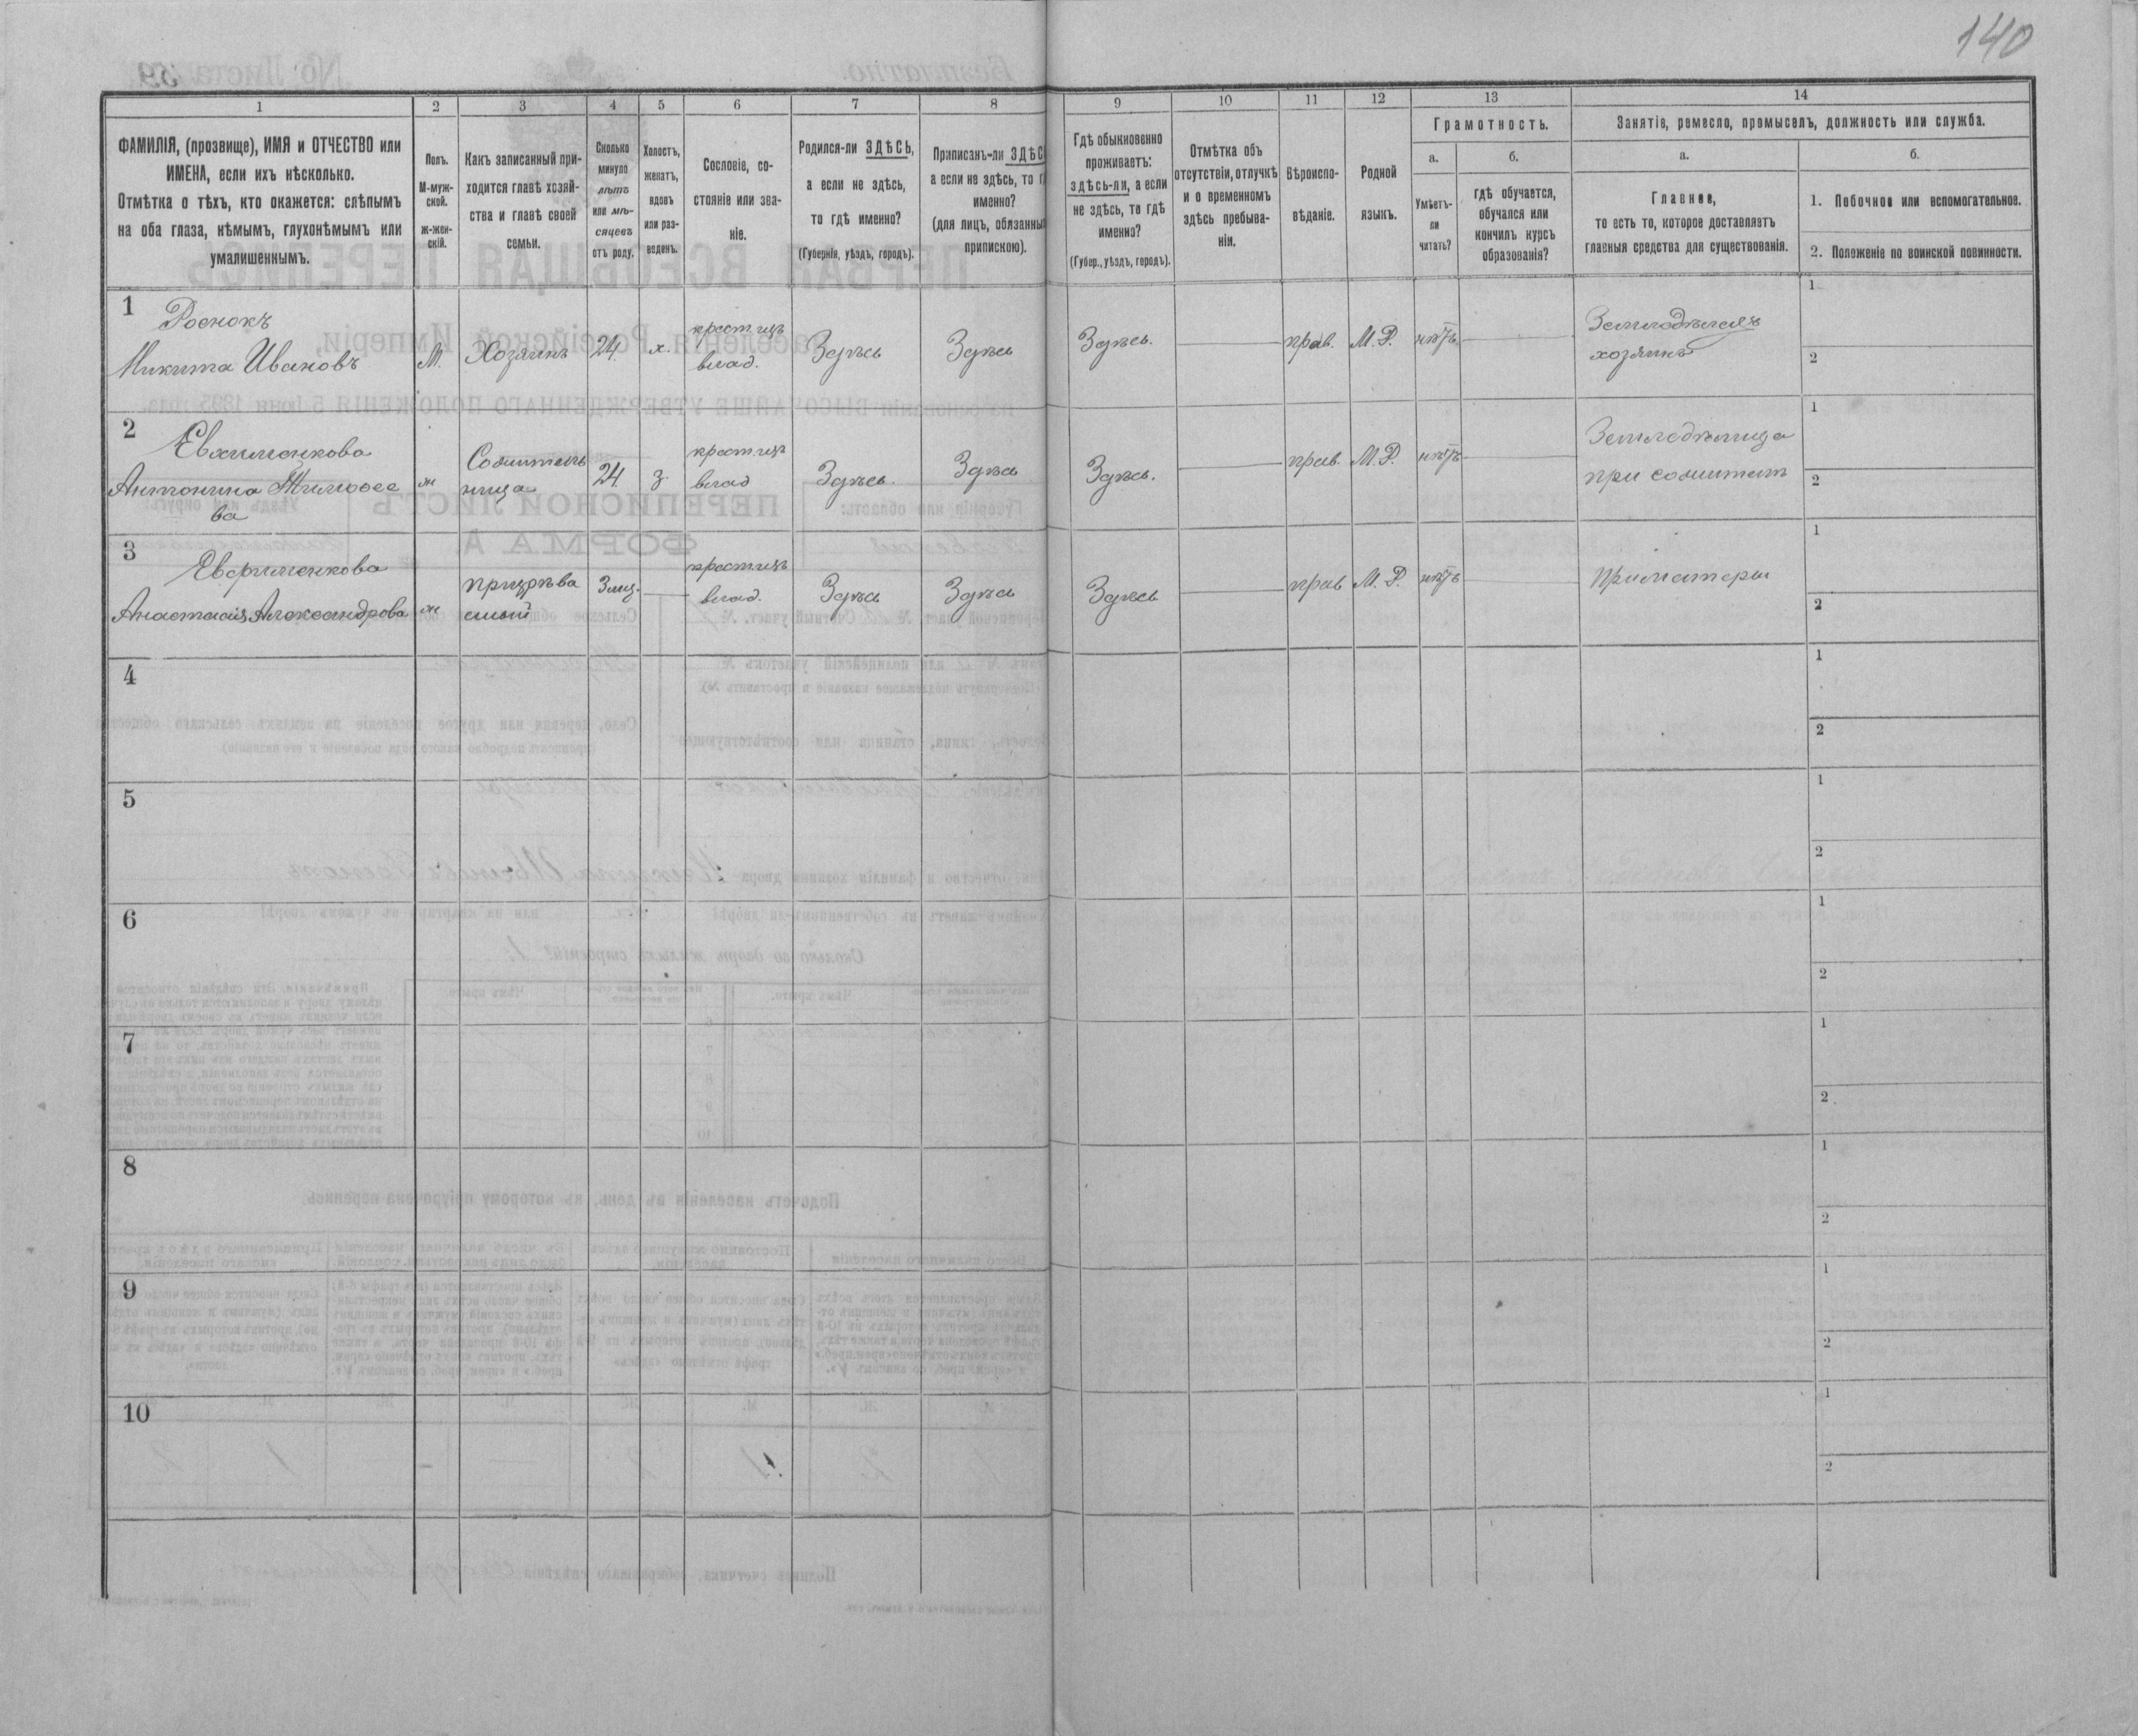 140
1 2 3 4 5 6 7 8 9 10 11 12 13 14
ФАМИЛІЯ, (прозвище), ИМЯ и ОТЧЕСТВО или
ИМЕНА, если ихъ нѣсколько.
Отмѣтка о тѣхъ, кто окажется: слѣпымъ
на оба глаза, нѣмымъ, глухонѣмымъ или
умалишеннымъ.
Полъ.
М-муж-
ской.
ж-жен-
скій.
Какъ записанный при-
ходится главѣ хозяй-
ства и главѣ своей
семьи.
Сколько
минуло
лѣтъ
или мѣ-
сяцевъ
отъ роду.
Холостъ,
женатъ,
вдовъ
или раз-
веденъ.
Сословіе, со-
стояніе или зва-
ніе.
Родился-ли ЗДѢСЬ,
а если не здѣсь,
то гдѣ именно?
(Губернія, уѣздъ, городъ).
Приписанъ-ли ЗДѢС
а если не здѣсь, то г
именно?
(для лицъ, обязанны
припискою).
Гдѣ обыкновенно
проживаетъ:
здѣсь-ли, а если
не здѣсь, то гдѣ
именно?
(Губер., уѣздъ, городъ).
Отмѣтка объ
отсутствіи, отлучкѣ
и о временномъ
здѣсь пребыва-
ніи.
Вѣроиспо-
вѣданіе.
Родной
языкъ.
Грамотность.
а.
Умѣетъ-
ли
читать?
б.
гдѣ обучается,
обучался или
кончилъ курсъ
образованія?
Занятіе, ремесло, промыселъ, должность или служба.
а.
Главное,
то есть то, которое доставляетъ
главныя средства для существованія.
б.
1. Побочное или вспомогательное.
2. Положеніе по воинской повинности.
1
Роенокъ
Никита Ивановъ
М.
Хозяинъ
24.
х.
крест. изъ
влад.
Здѣсь
Здѣсь
Здѣсь.
прав.
М. Р.
нѣтъ
Земледѣлецъ
хозяинъ
1
2
2
Антонина Тимофее
ва
ж
Сожитель
ница
24
з.
крест. изъ
влад
Здѣсь.
Здѣсь
Здѣсь.
прав.
М. Р.
нѣтъ
Земледѣлица
при сожителѣ
1
2
3
Евфименкова
Анастасія Александрова
ж
призрѣва
емый
3 мц.
крест. изъ
влад.
Здѣсь
Здѣсь
Здѣсь
прав
М. Р.
нѣтъ
При матери
1
2
4
1
2
5
1
2
6
1
2
7
1
2
8
1
2
9
1
2
10
1
2